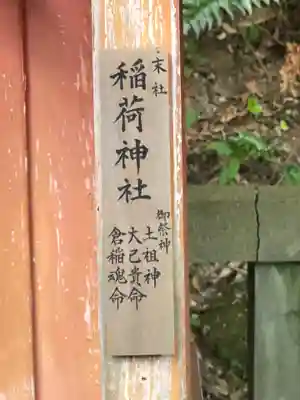 末社
稲荷神社
御祭神
土祖神
大己貴命
倉稲魂命